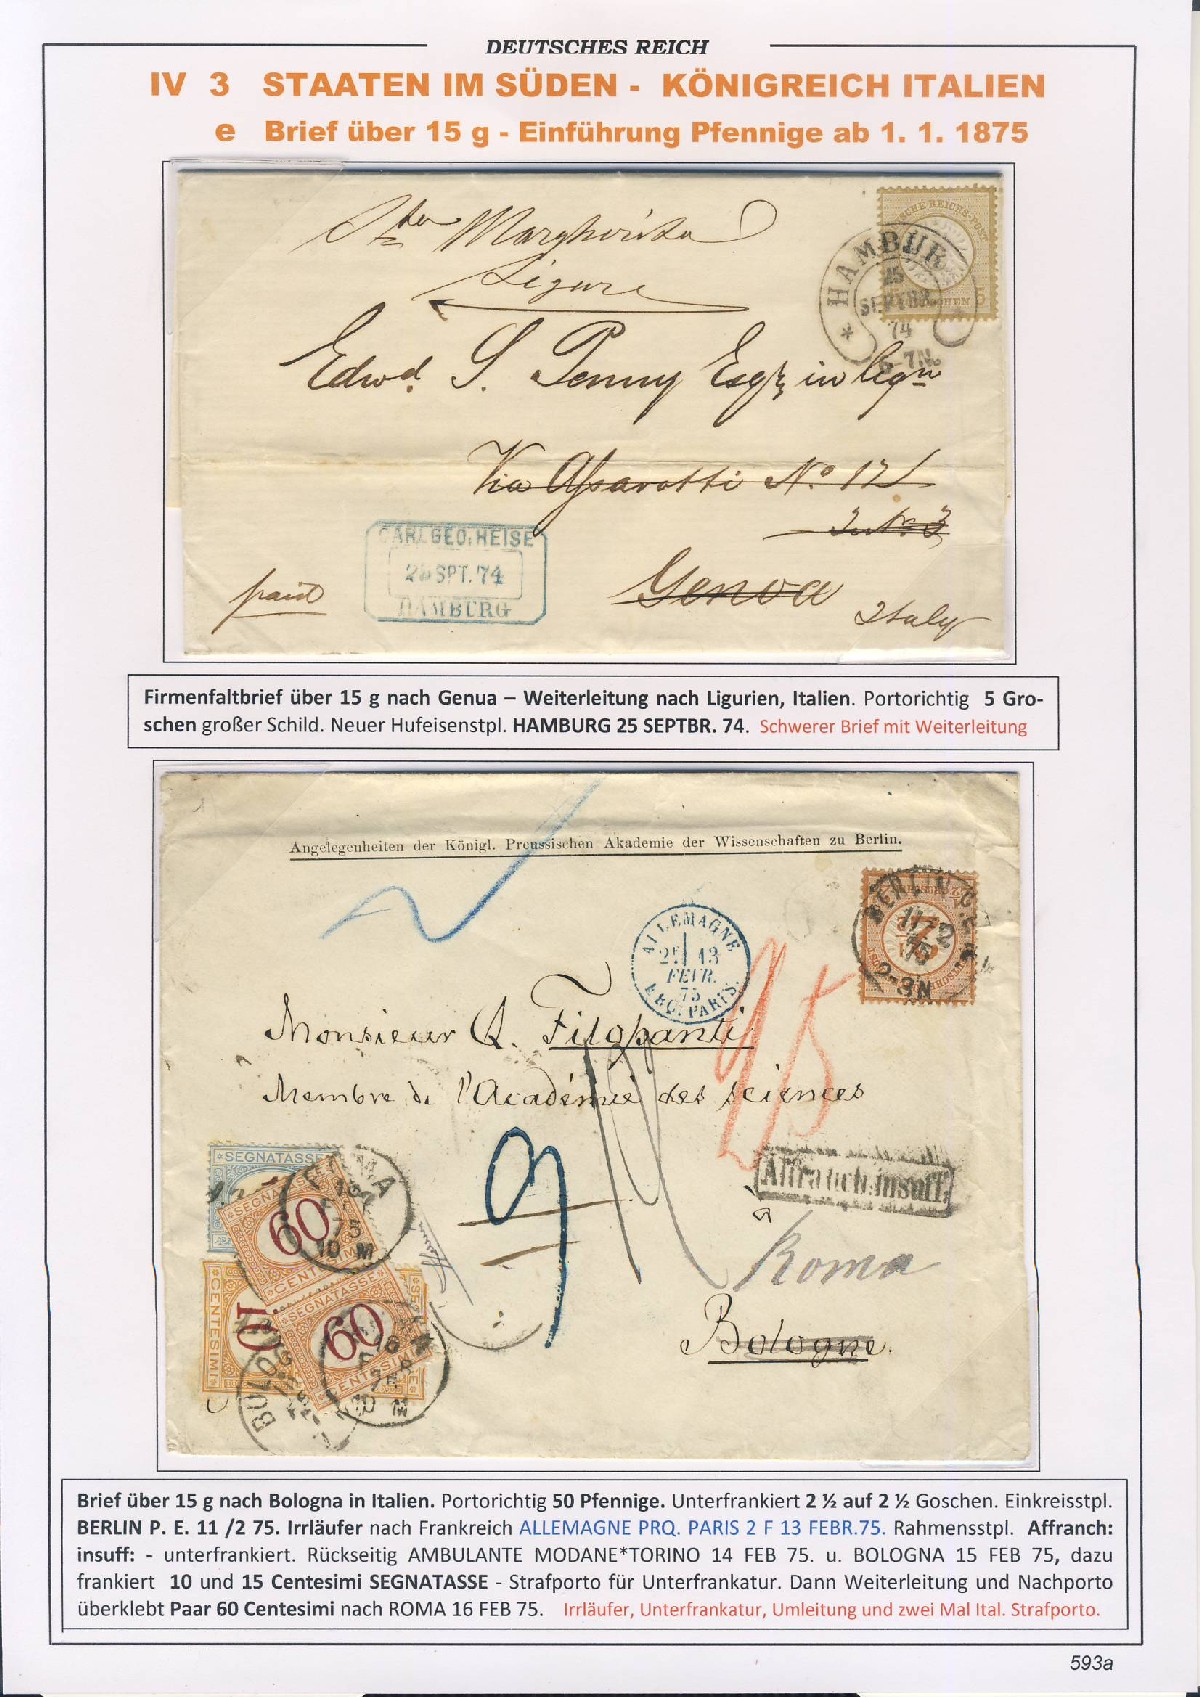 DEUTSCHES REICH
IV 3 STAATEN IM SÜDEN - KÖNIGREICH ITALIEN
e Brief über 15 g - Einführung Pfennige ab 1. 1. 1875
Margherita
Ligure
HAMBURG
25
SEPTBR.
74
6-7N.
Edwd. S. Penny Esqr
Via Assarotti No 12
Genova
Italy
paid
CARL GEO. HEISE
25 SPT. 74
HAMBURG
Firmenfaltbrief über 15 g nach Genua – Weiterleitung nach Ligurien, Italien. Portorichtig 5 Gro-
schen großer Schild. Neuer Hufeisenstpl. HAMBURG 25 SEPTBR. 74. Schwerer Brief mit Weiterleitung
Angelegenheiten der Königl. Preussischen Akademie der Wissenschaften zu Berlin.
ALLEMAGNE
2F 13
FEVR.
75
PARIS.
BERLIN P.E.
11/2
75
2-3N
25
Monsieur Q. Filopanti
Membre de l'Académie des sciences
9
Affranch. insuff.
à
Roma
Bologne.
SEGNATASSE
SEGNATASSE
60
CENTESIMI
ROMA
75
10 M
CENTESIMI
10
SEGNATASSE
60
CENTESIMI
16
75
10 M
BOLOGNA
Brief über 15 g nach Bologna in Italien. Portorichtig 50 Pfennige. Unterfrankiert 2 ½ auf 2 ½ Goschen. Einkreisstpl.
BERLIN P. E. 11 /2 75. Irrläufer nach Frankreich ALLEMAGNE PRQ. PARIS 2 F 13 FEBR.75. Rahmensstpl. Affranch:
insuff: - unterfrankiert. Rückseitig AMBULANTE MODANE*TORINO 14 FEB 75. u. BOLOGNA 15 FEB 75, dazu
frankiert 10 und 15 Centesimi SEGNATASSE - Strafporto für Unterfrankatur. Dann Weiterleitung und Nachporto
überklebt Paar 60 Centesimi nach ROMA 16 FEB 75. Irrläufer, Unterfrankatur, Umleitung und zwei Mal Ital. Strafporto.
593a